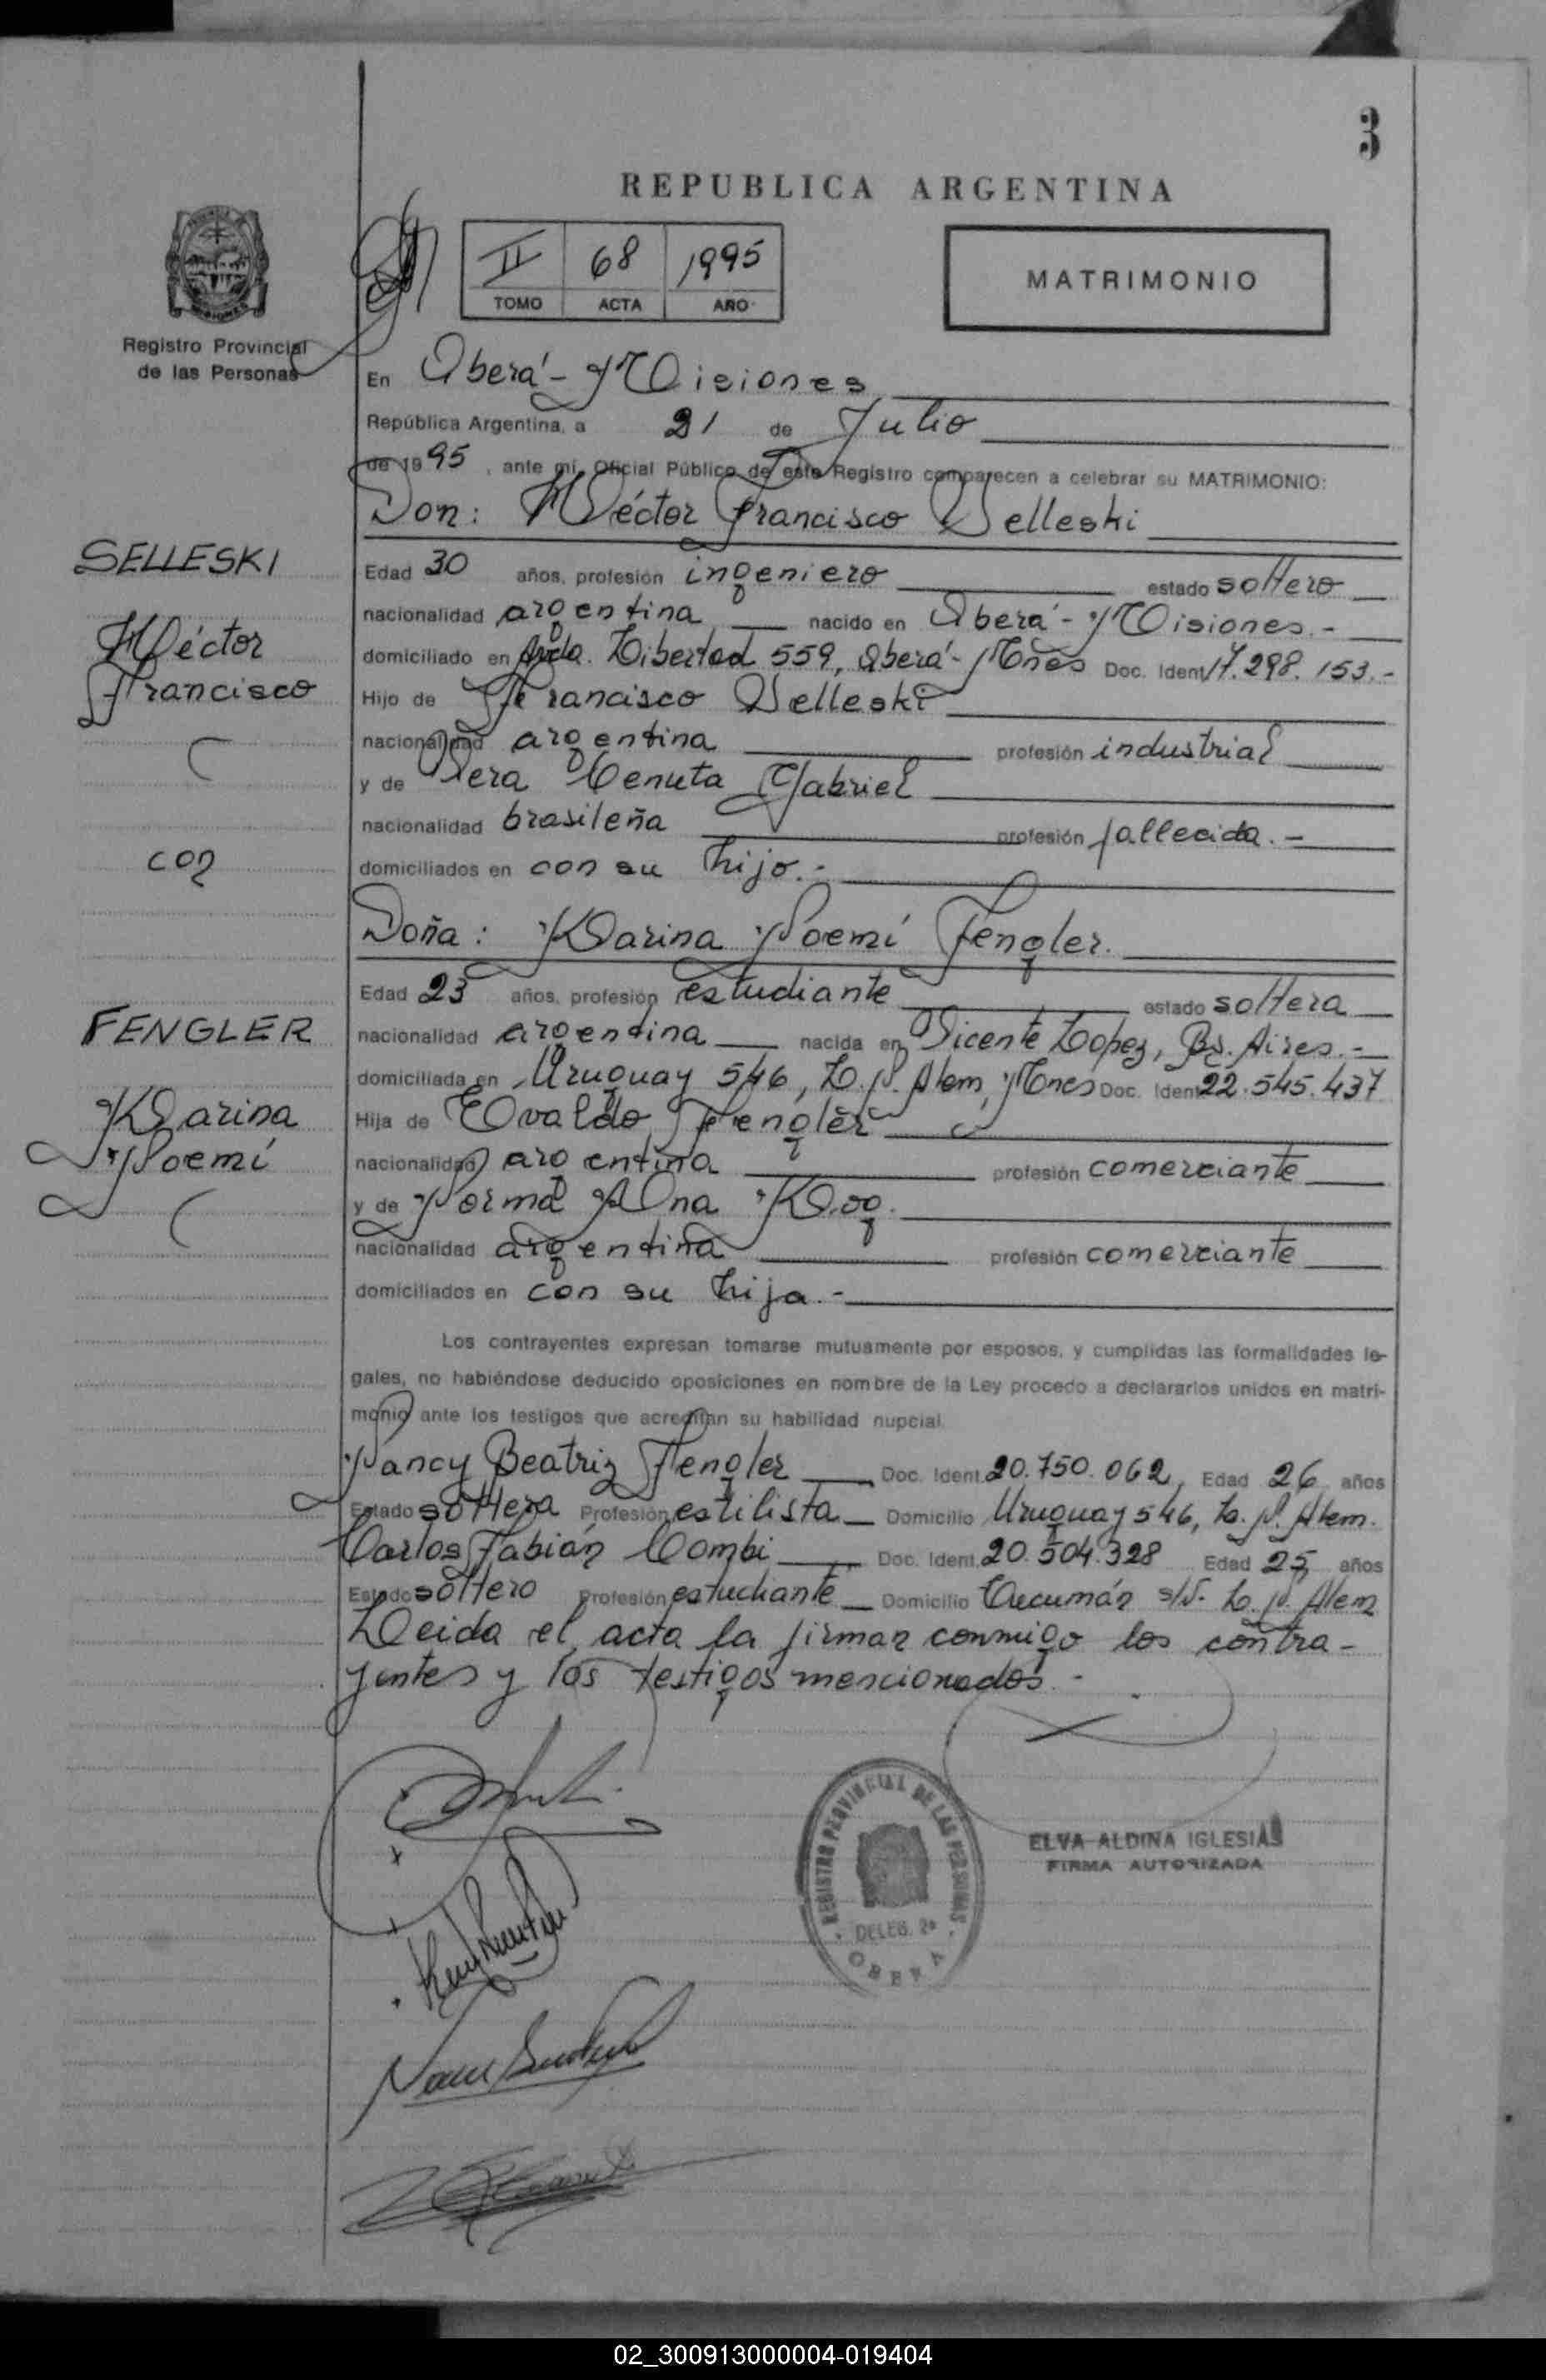 3
REPUBLICA ARGENTINA
II 68 1995
TOMO ACTA AÑO
MATRIMONIO
Registro Provincial
de las Personas
En Oberá - Misiones
República Argentina, a 21 de Julio
de 1995, ante mi, Oficial Público de este Registro comparecen a celebrar su MATRIMONIO:
Don: Héctor Francisco Selleski
SELLESKI
Héctor
Francisco
con
FENGLER
Karina
Noemí
Edad 30 años, profesión ingeniero estado soltero
nacionalidad argentina nacido en Oberá - Misiones.-
domiciliado en Avda. Libertad 559, Oberá - Mnes Doc. Ident. 17.298.153.-
Hijo de Francisco Selleski
nacionalidad argentina profesión industrial
y de Vera Venuta Gabriel
nacionalidad brasileña profesión fallecida.-
domiciliados en con su hijo.-
Doña: Karina Noemí Fengler.
Edad 23 años, profesión estudiante estado soltera
nacionalidad argentina nacida en Vicente Lopez, Bs. Aires.-
domiciliada en Uruguay 546, L. N. Alem, Mnes Doc. Ident. 22.545.437
Hija de Ovaldo Fengler
nacionalidad argentina profesión comerciante
y de Norma Ana
nacionalidad argentina profesión comerciante
domiciliados en con su hija.-
Los contrayentes expresan tomarse mutuamente por esposos, y cumplidas las formalidades le-
gales, no habiéndose deducido oposiciones en nombre de la Ley procedo a declararlos unidos en matri-
monio ante los testigos que acreditan su habilidad nupcial.
Nancy Beatriz Fengler Doc. Ident. 20.750.062, Edad 26 años
Estado soltera Profesión estilista Domicilio Uruguay 546, L. N. Alem.
Carlos Fabián Combi Doc. Ident. 20.504.328 Edad 25 años
Estado soltero Profesión estudiante Domicilio Tucumán s/N. L. N. Alem
Leida el acta la firman conmigo los contra-
yentes y los testigos mencionados.-
REGISTRO PROVINCIAL DE LAS PERSONAS
DELEG. 2ª
OBERA
ELVA ALDINA IGLESIAS
FIRMA AUTORIZADA
02_300913000004-019404